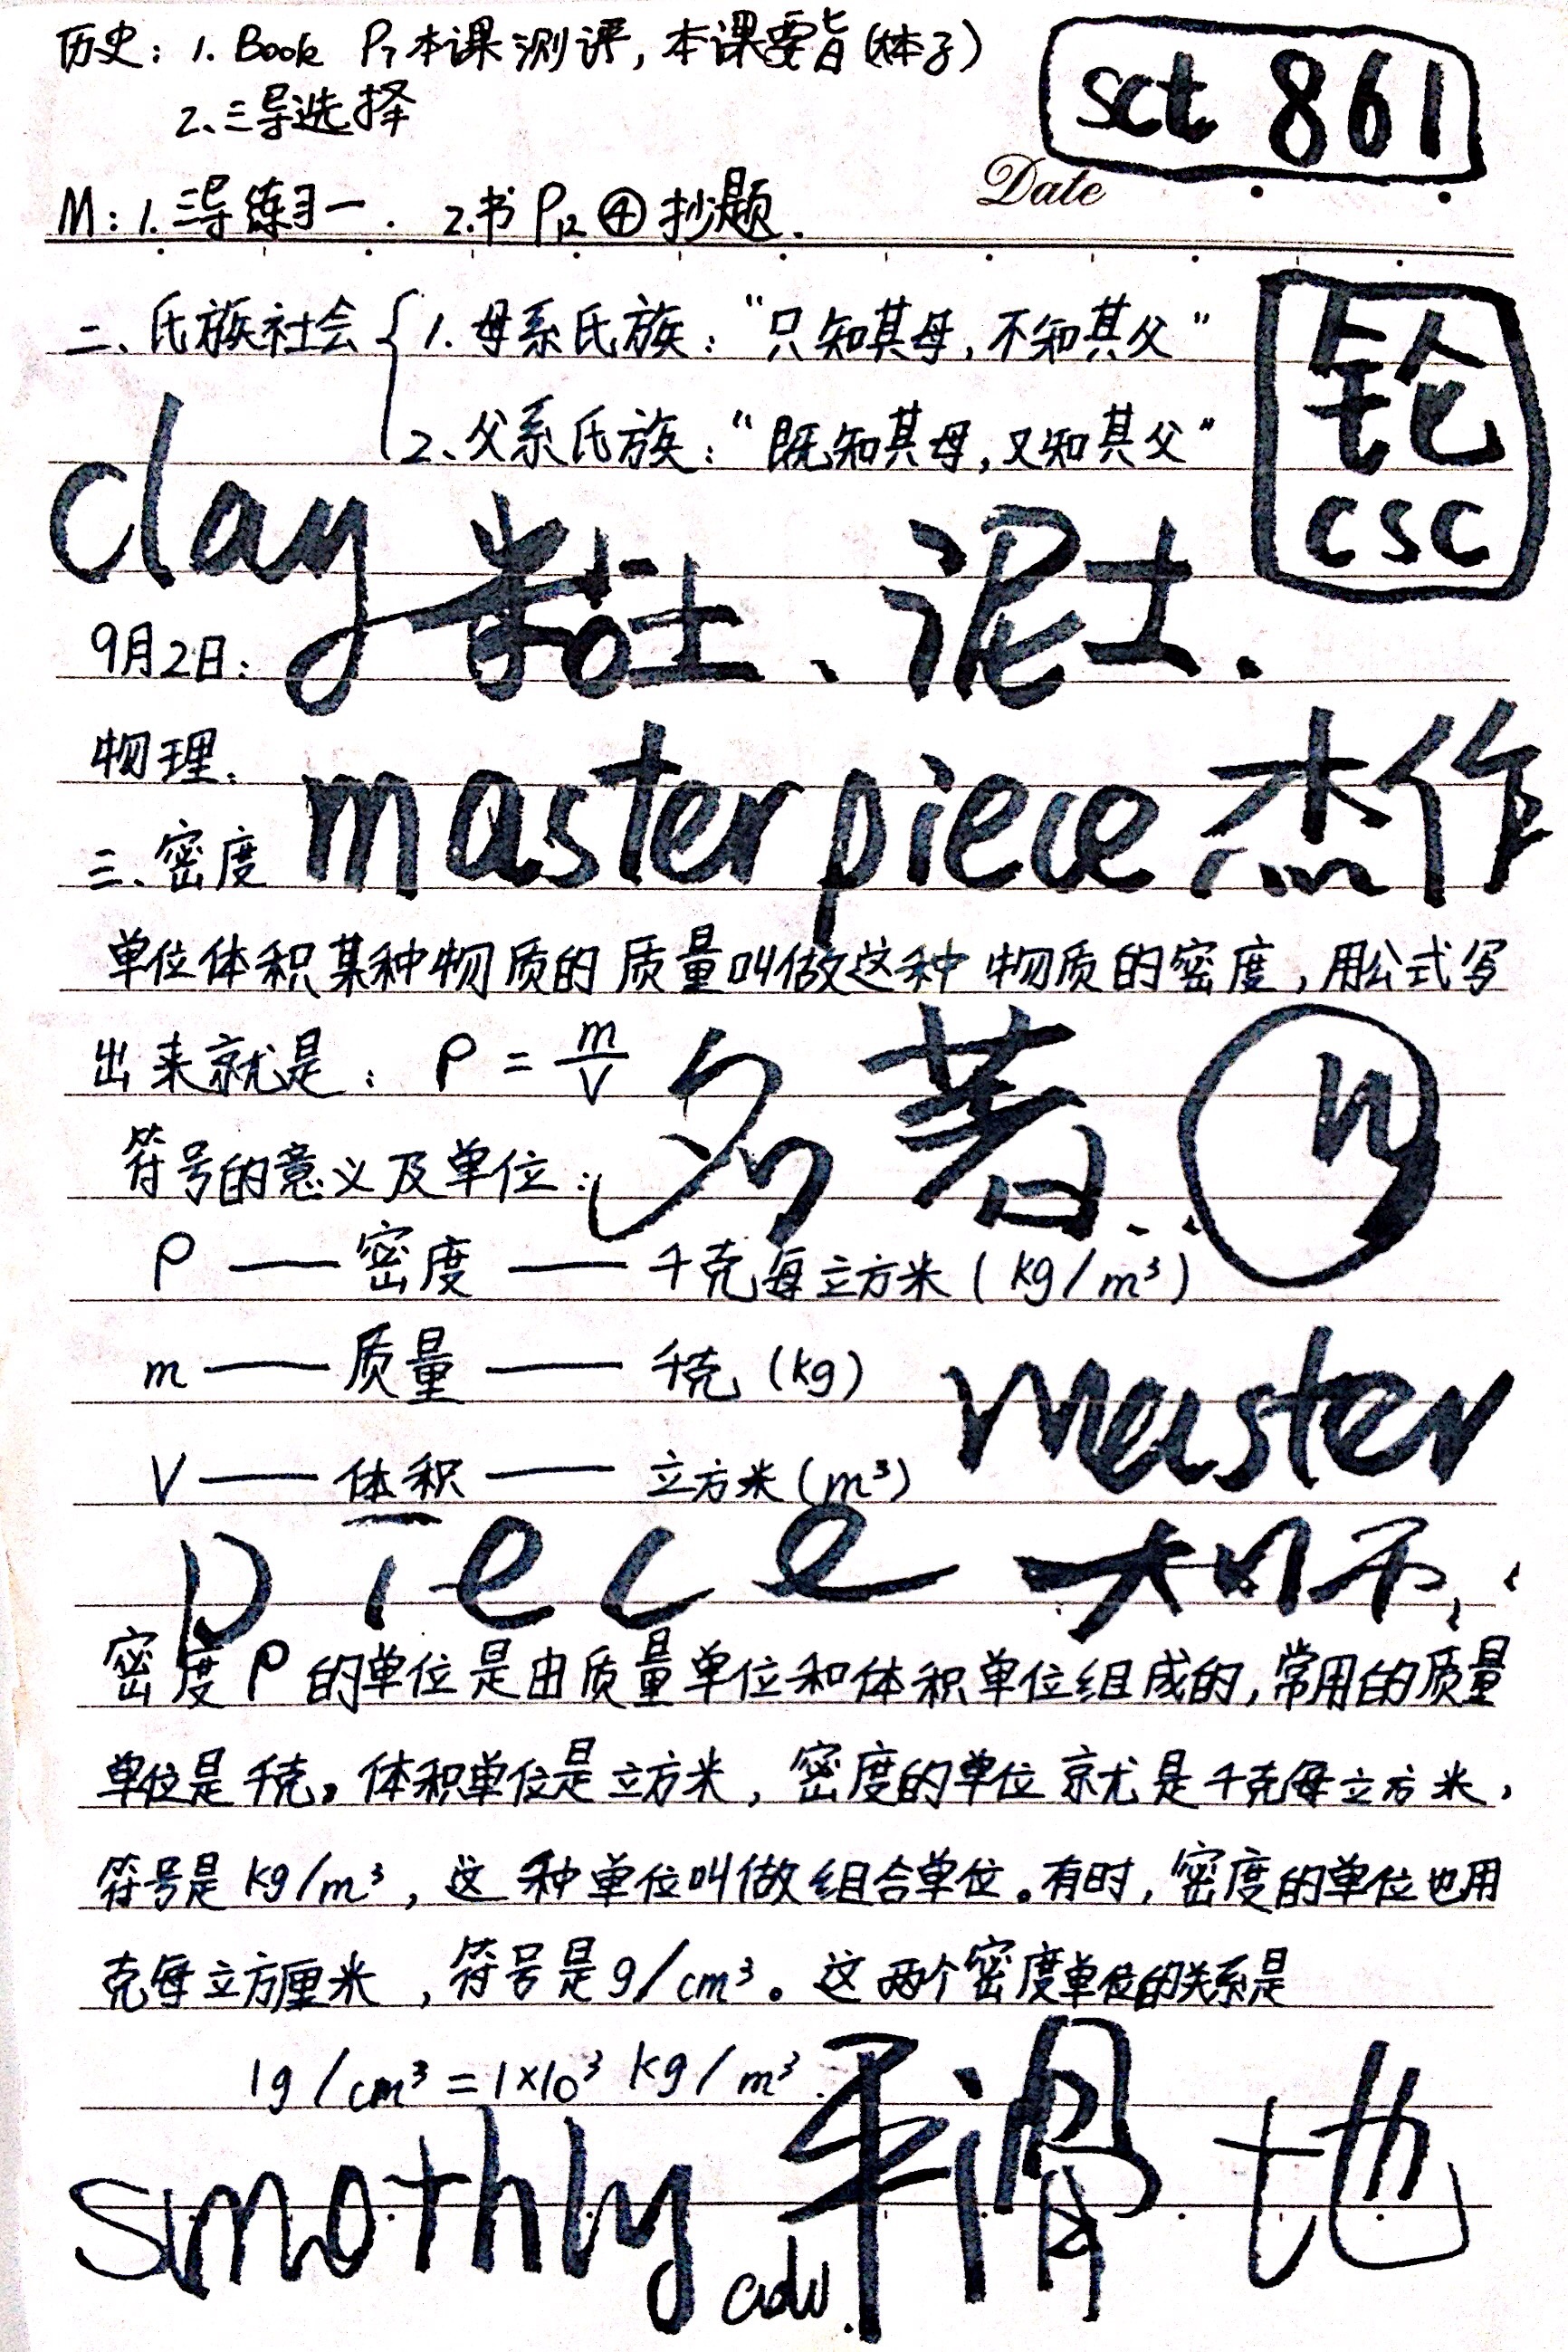 历史：1. Book P7 本课测评，本课要旨（本子）
sct 861
2、三导选择
Date
M：1. 三导练习一. 2. 书 P12 ④ 抄题.
二、氏族社会 { 1. 母系氏族：“只知其母，不知其父”
2、父系氏族：“既知其母，又知其父”
csc
clay 黏土、泥土.
9月2日：
物理：
masterpiece 杰作
三、密度
单位体积某种物质的质量叫做这种物质的密度，用公式写
出来就是：ρ = m/V
名著. n
符号的意义及单位：
ρ —— 密度 —— 千克每立方米（kg/m³）
m —— 质量 —— 千克（kg）
V —— 体积 —— 立方米（m³）
master
piece
密度ρ的单位是由质量单位和体积单位组成的，常用的质量
单位是千克，体积单位是立方米，密度的单位就是千克每立方米，
符号是kg/m³，这种单位叫做组合单位。有时，密度的单位也用
克每立方厘米，符号是g/cm³。这两个密度单位的关系是
1g/cm³=1×10³ kg/m³.
smothly adv. 平滑地